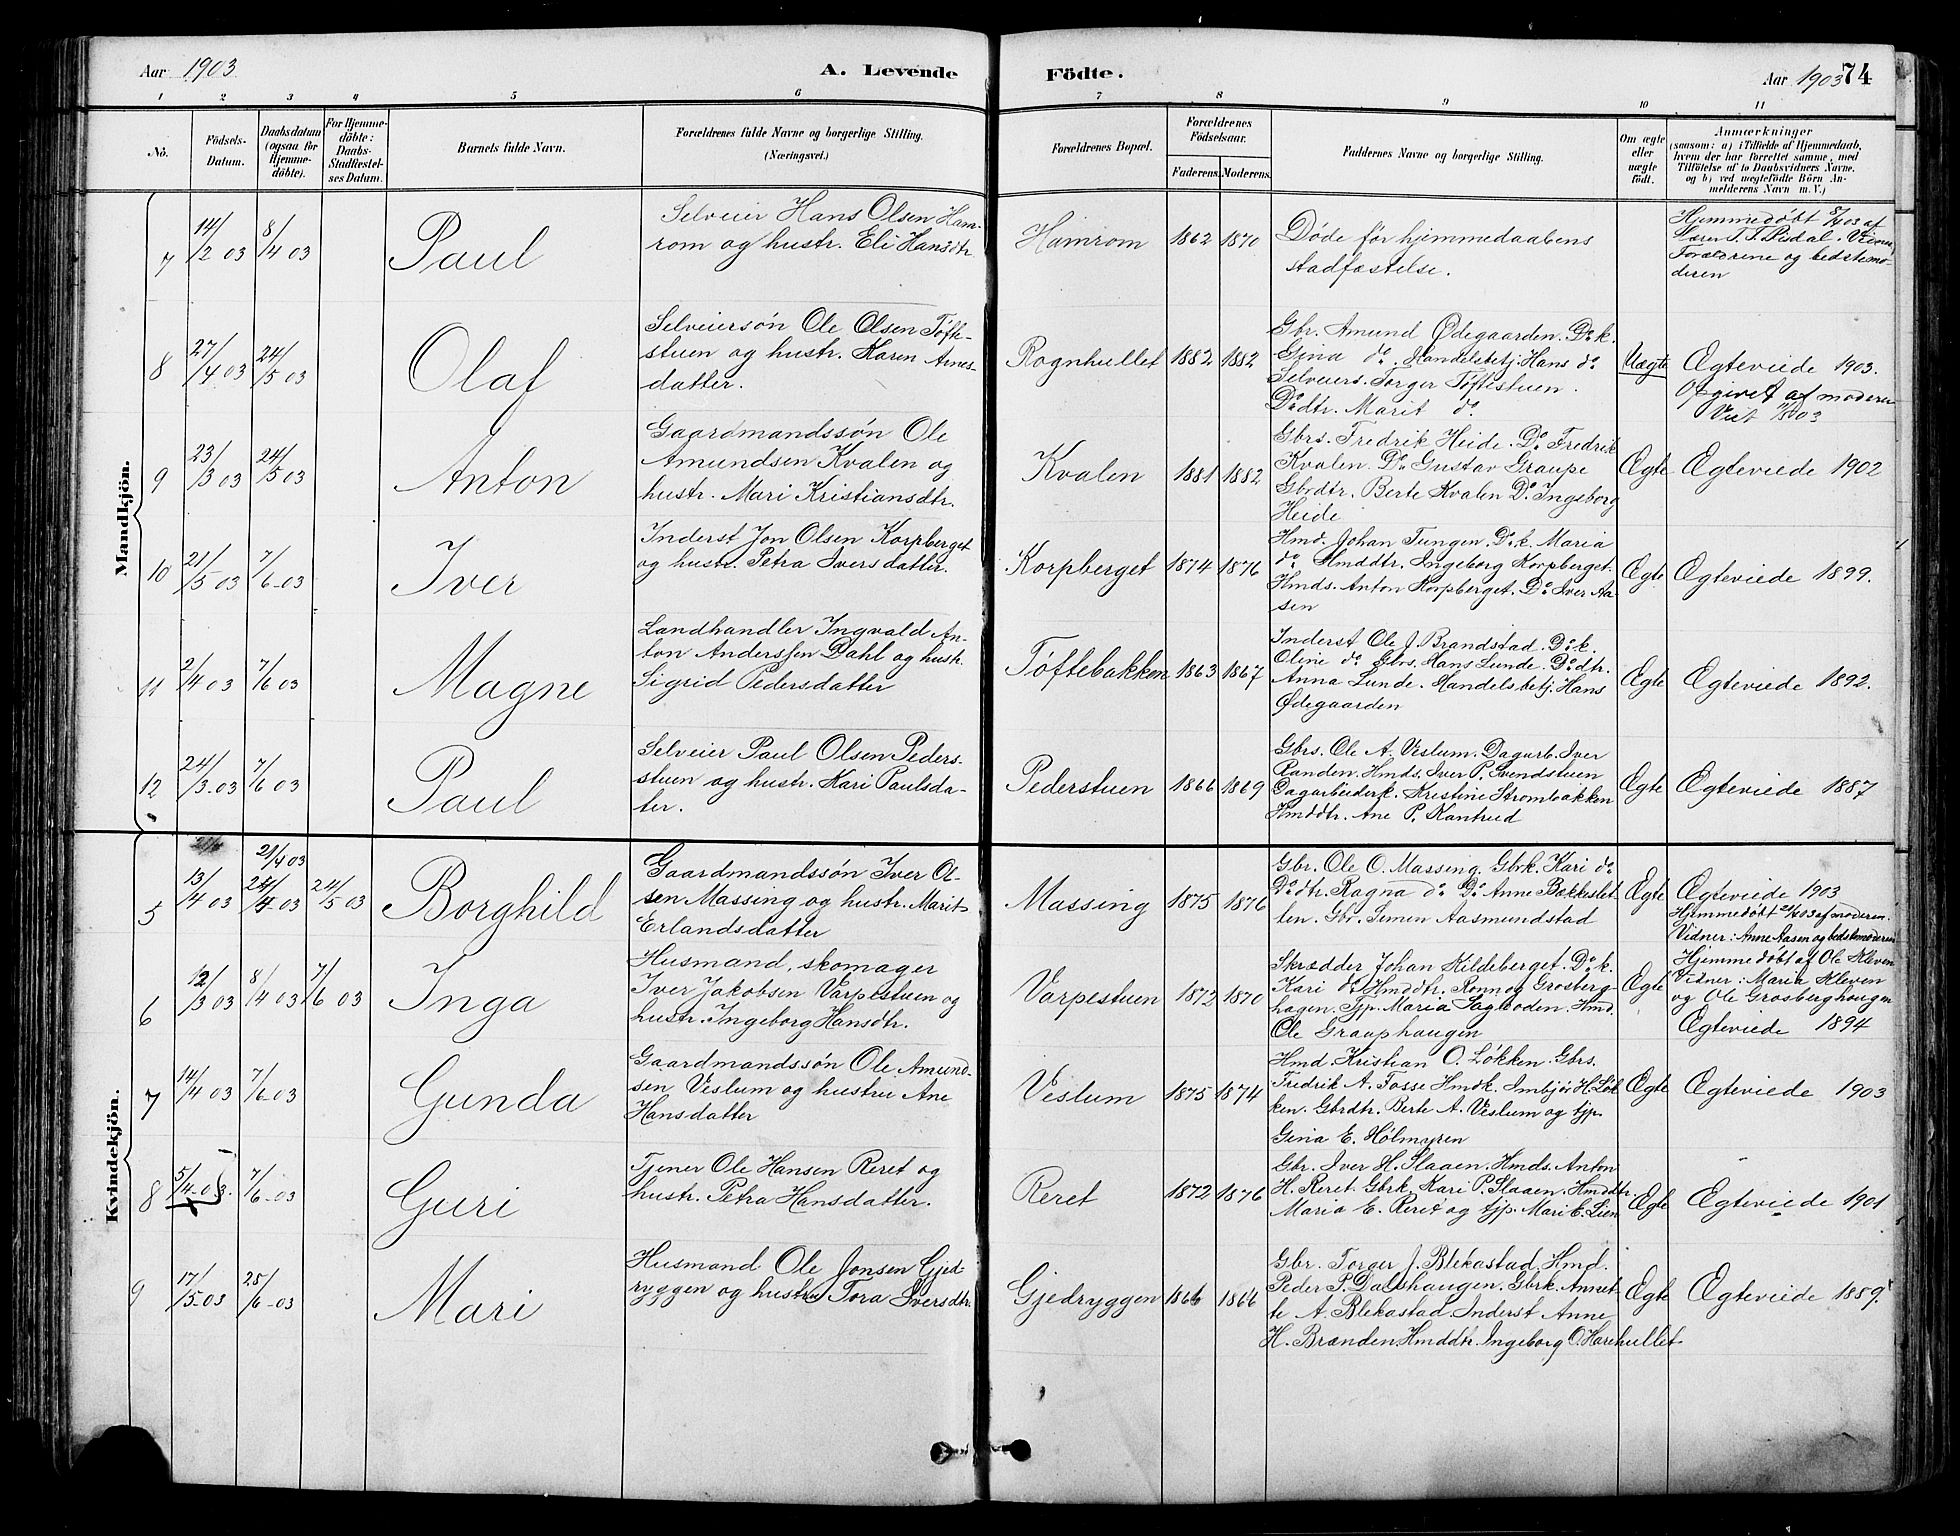 Aar 1903
A. Levende
Födte.
Aar 1903
74
1 2 3 4 5 6 7 8 9 10 11
No.
Födsels-
Datum.
Daabsdatum
(ogsaa for
Hjemme-
döbte).
For Hjemme-
döbte:
Daabs-
Stadfæstel-
ses Datum.
Barnets fulde Navn.
Forældrenes fulde Navne og borgerlige Stilling.
(Næringsvei.)
Forældrenes Bopæl.
Forældrenes
Födselsaar.
Faderens. Moderens.
Faddernes Navne og borgerlige Stilling.
Om ægte
eller
uægte
födt.
Anmærkninger
(saasom: a) i Tilfælde af Hjemmedaab,
hvem der har forrettet samme, med
Tilföielse af to Daabsvidners Navne,
og b) ved uægtefödte Börn An-
melderens Navn m. V.)
Mandkjön.
7
14/2 03
8/4 03
Paul
Selveier Hans Olsen Ham-
rom og hustr. Eli Hansdtr
Hamrom
1862
1870
Døde før hjemmedaabens
stadfæstelse.
Hjemmedøbt 8/4 03 af
Forældrene og bedstemo-
deren
8
27/4 03
24/5 03
Olaf
Selveiersøn Ole Olsen Tøfte-
stuen og hustr. Karen Arnes-
datter.
Rognhullet
1882
1882
Gbr. Amund Ødegaarden. Do k.
Gina do. Handelsbetj. Hans do
Selveiers. Torger Tøftestuen.
Do dtr. Marit do
Uægte
Ægteviede 1903.
Opgivet af moderen
9
23/3 03
24/5 03
Anton
Gaardmandssøn Ole
Amundsen Kvalen og
hustr. Mari Kristiansdtr.
Kvalen
1881
1882
Gbrs. Fredrik Heide. Do Fredrik
Kvalen. Do Gustav Graupe
Gbrdtr. Berte Kvalen Do Ingeborg
Heide
Ægte
Ægteviede 1902
10
21/5 03
7/6 03
Iver
Inderst Jon Olsen Korpberget
og hustr. Petra Iversdatter.
Korpberget
1874
1876
Hmd. Johan Tungen. Do k. Maria
do Hmddtr. Ingeborg Korpberget.
Hmds. Anton Korpberget. Do Iver Aa-
sen
Ægte
Ægteviede 1899.
11
2/4 03
7/6 03
Magne
Landhandler Ingvald An-
ton Anderssen Dahl og hustr.
Sigrid Pedersdatter
Tøftebakken
1863
1867
Inderst Ole J. Brandstad. Do k.
Oline do Gbrs. Hans Lunde. Do dtr.
Anna Lunde. Handelsbetj. Hans
Ødegaarden
Ægte
Ægteviede 1892.
12
24/3 03
7/6 03
Paul
Selveier Paul Olsen Peders-
stuen og hustr. Kari Paulsda-
tter.
Pederstuen
1866
1869
Gbrs. Ole A. Veslum. Dagarb. Iver
Randen. Hmds. Iver P. Svendstuen
Dagarbeiderk. Kristine Strombakken
Hmddtr. Ane P. Kantrud
Ægte
Ægteviede 1887
Kvindekjön.
5
13/4 03
21/4 03
24/5 03
Borghild
Gaardmandssøn Iver Ol-
sen Massing og hustr. Marit
Erlandsdatter
Massing
1875
1876
Gbr. Ole O. Massing. Gbrk. Kari do
Do dtr. Ragna do Do Anne Bakkeslet-
ten. Gbr. Simen Aasmundstad
Ægte
Ægteviede 1903
Hjemmedøbt 21/4 03 af moderen.
Vidner: Anne Aasen og bedstemoderen
6
12/3 03
8/4 03
7/6 03
Inga
Husmand, skomager
Iver Jakobsen Varpestuen og
hustr. Ingeborg Hansdtr.
Varpestuen
1872
1870
Skrædder Johan Kildeberget. Do k.
Kari do Hmddtr. Ronnog Grosberg-
hagen. Tjp. Maria Sagboden. Hmd.
Ole Graaphaugen
Ægte
Hjemmedøbt af Ole Kleven
Vidner: Maria Kleven
og Ole Grosberghaugen
Ægteviede 1894
7
14/4 03
7/6 03
Gunda
Gaardmandssøn Ole Amund-
sen Veslum og hustru Ane
Hansdatter
Veslum
1875
1874
Hmd Kristian O. Løkken. Gbrs.
Fredrik A. Fosse Hmdk. Imbjør H. Løk-
ken. Gbrdtr. Berte A. Veslum og tjp.
Gina E. Holmyren
Ægte
Ægteviede 1903
8
5/4 03.
7/6 03
Guri
Tjener Ole Hansen Reret og
hustr. Petra Hansdatter.
Reret
1872
1876
Gbr. Iver H. Slaaen. Hmds. Anton
H. Reret. Gbrk. Kari P. Slaaen. Hmddtr.
Maria E. Reret og tjp. Mari E. Lien
Ægte
Ægteviede 1901
9
17/5 03
25/6 03
Mari
Husmand Ole Jonsen Gjed-
ryggen og hustru Tora Iversdtr
Gjedryggen
1866
1866
Gbr. Torger J. Blekastad. Hmd.
Peder P. Dalshaugen. Gbrk. Annet-
te A. Blekastad Inderst Anne
H. Brænden. Hmddtr. Ingeborg O. Harehullet
Ægte
Ægteviede 1889.